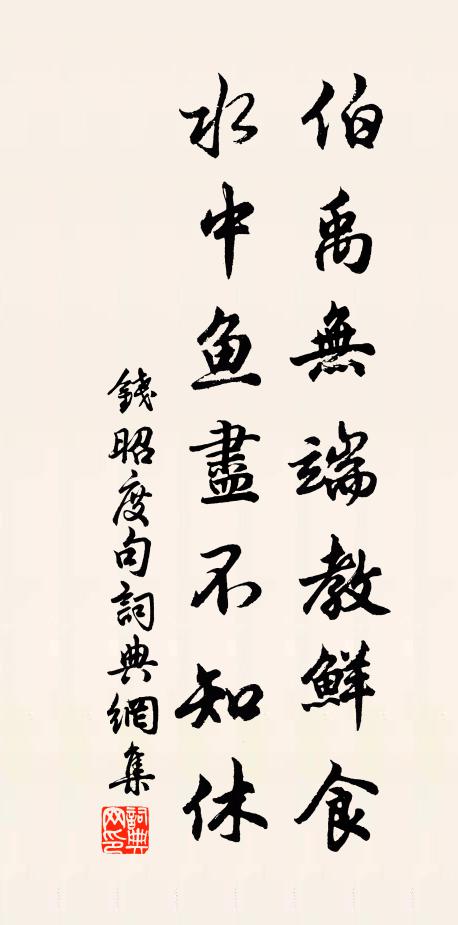 伯禹無端教鮮食
水中魚盡不知休
錢昭度句詞典網集
詞典
网印